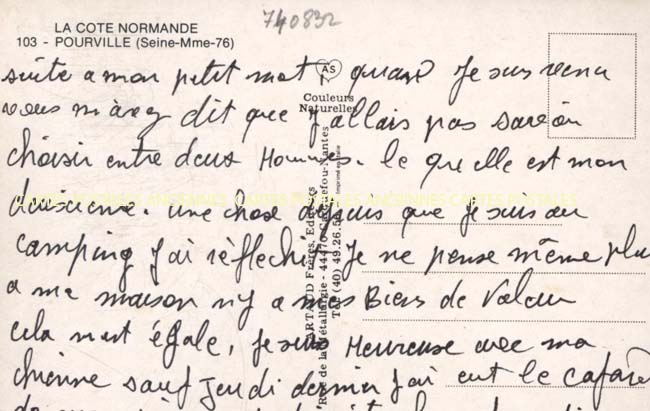 LA COTE NORMANDE
103 - POURVILLE (Seine-Mme-76)
740832
AS
Couleurs
Naturelles
suite a mon petit mot quand Je suis venu
vous m'avez dit que J'allais pas savoir
choisir entre deux Hommes. le quelle est mon
une chose dessus que Je suis au
camping J'ai rèflechir Je ne pense même plu
a ma maison n'y a mes Biens de Valeur
cela m'est égale, Je suis Heureuse avec ma
chienne sauf Jeudi dernier J'ai eut le cafard
CARTES POSTALES ANCIENNES CARTES POSTALES
ARTAUD Frères, Editeurs
Rue de la Métallurgie - 44470 Carquefou-Nantes
Tél. (40) 49.26.5
Imprimé